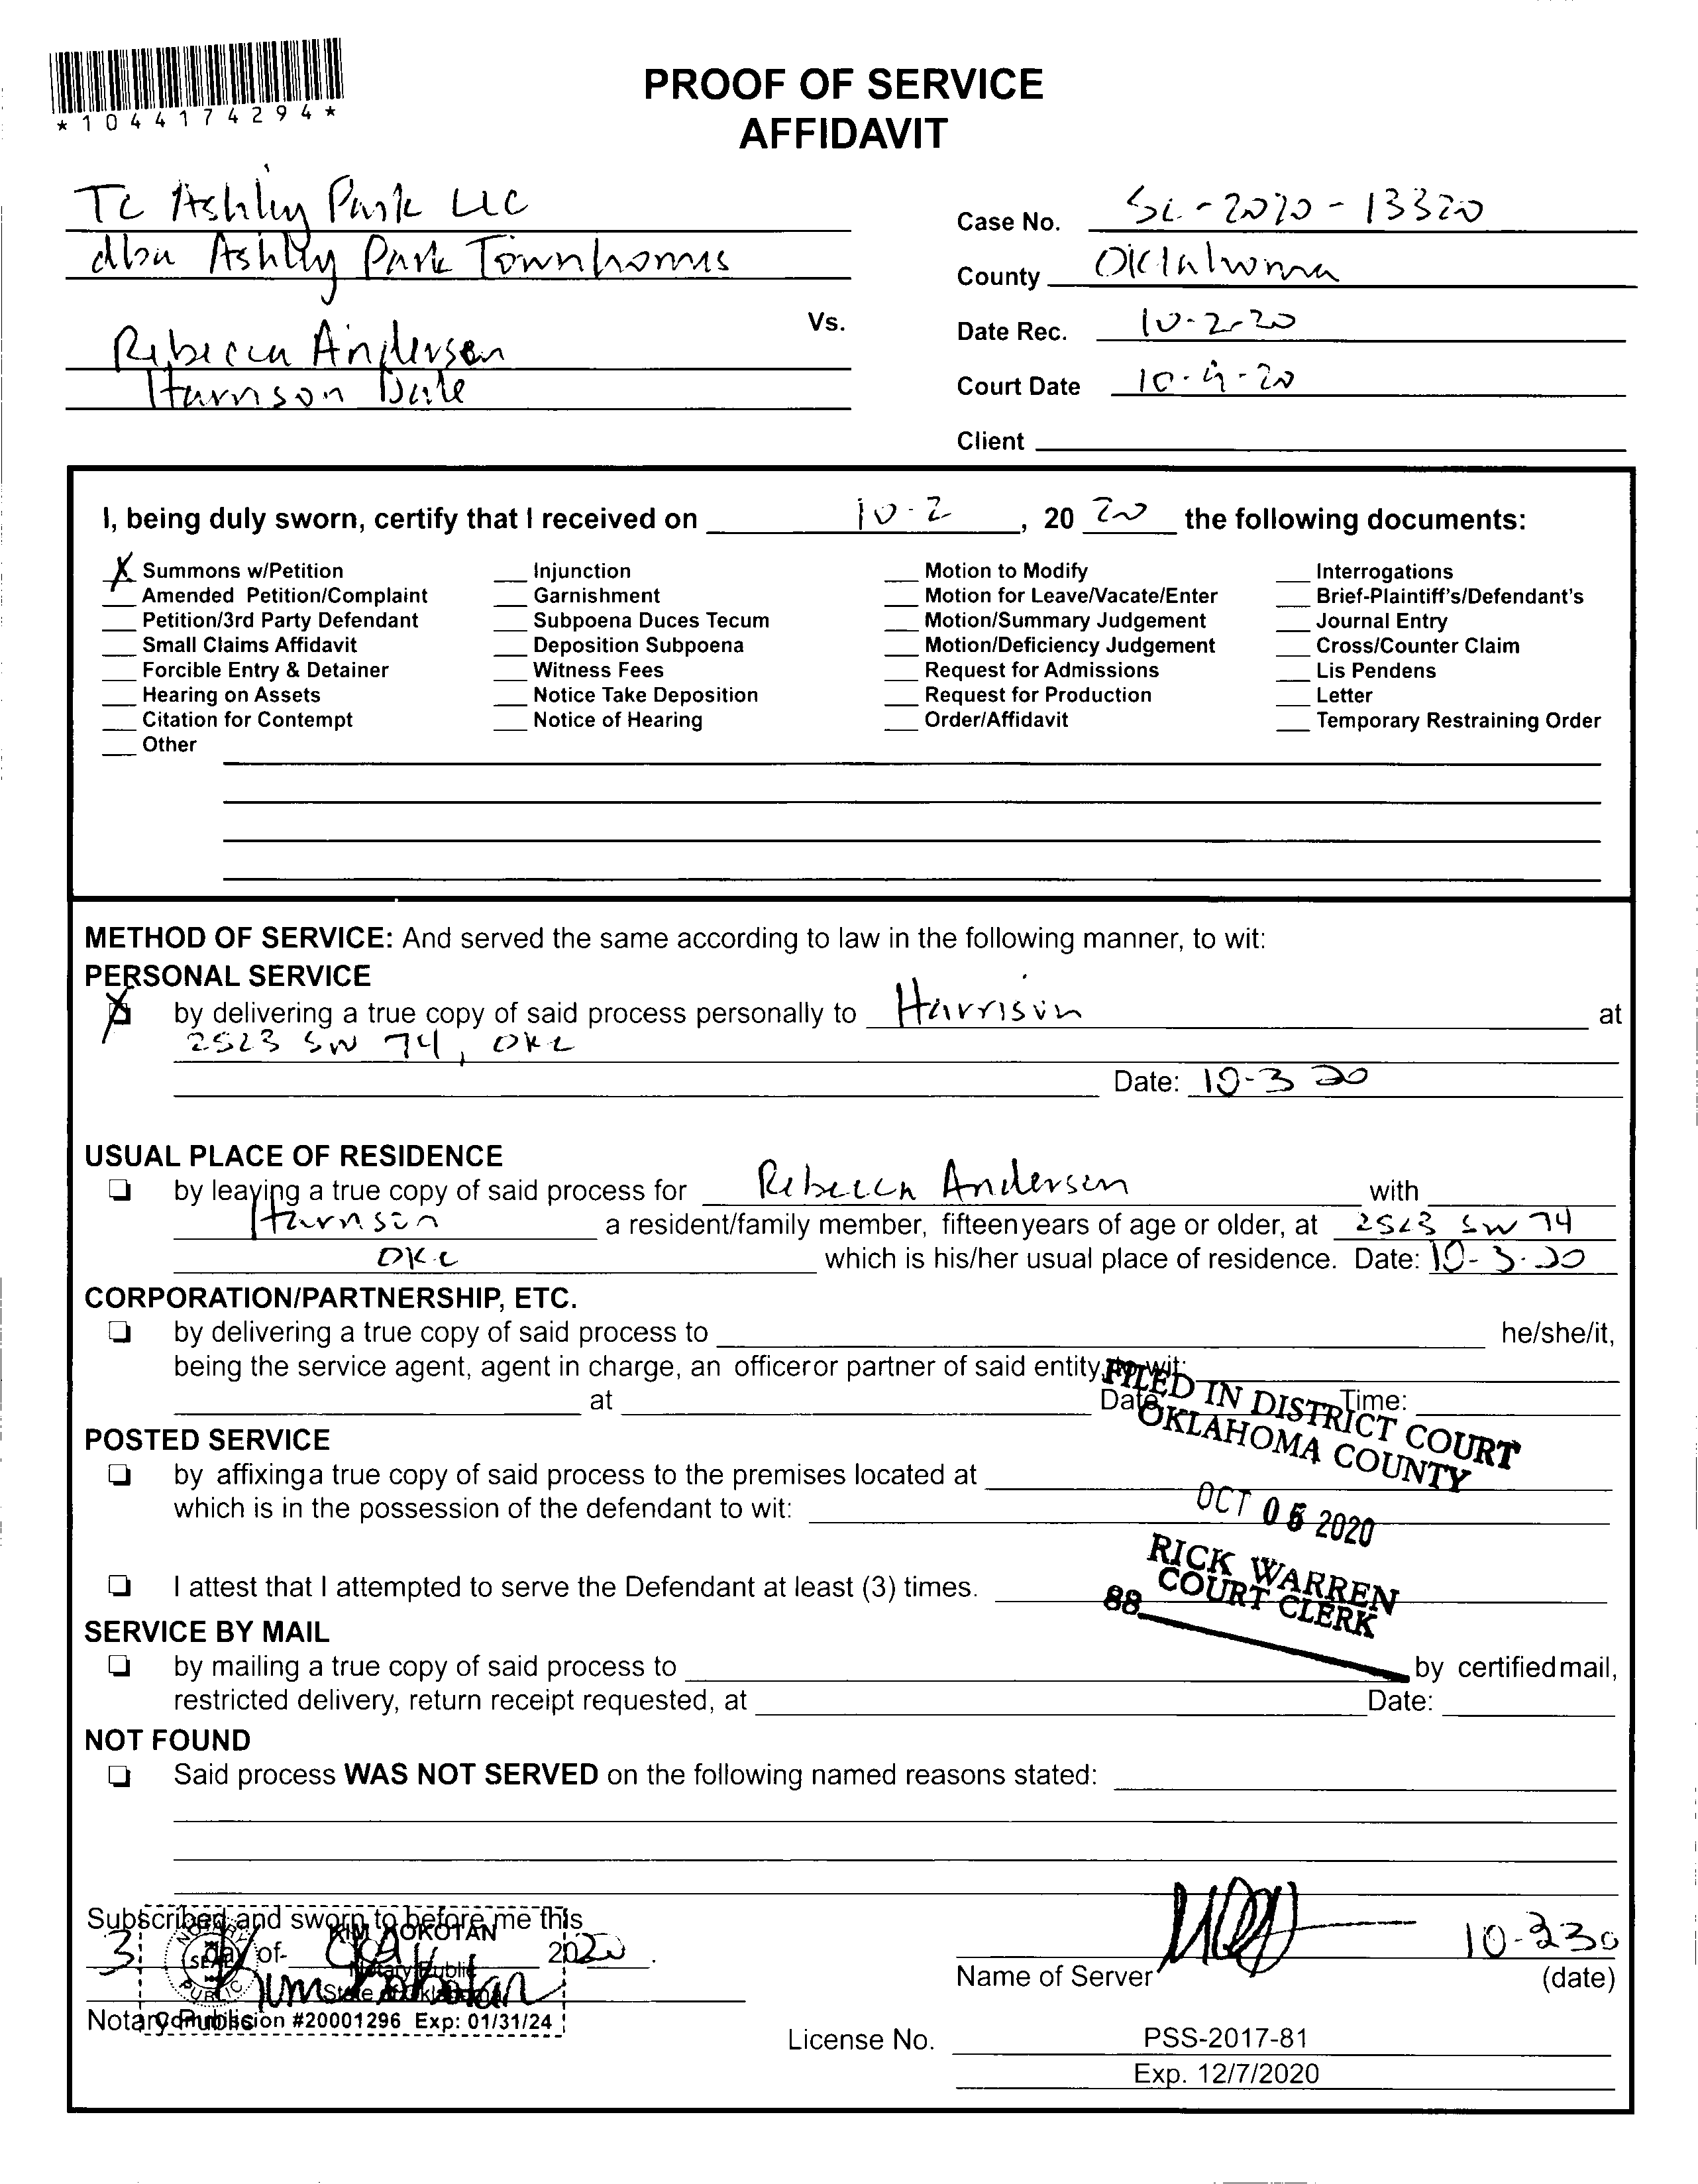 *1044174294*
PROOF OF SERVICE
AFFIDAVIT
Tc Ashley Park LLC
dba Ashley Park Townhomes
Vs.
Rebecca Andersen
Harrison Dale
Case No. SC-2020-13320
County Oklahoma
Date Rec. 10-2-20
Court Date 10-9-20
Client
I, being duly sworn, certify that I received on 10-2, 20 20 the following documents:
X Summons w/Petition
Amended Petition/Complaint
Petition/3rd Party Defendant
Small Claims Affidavit
Forcible Entry & Detainer
Hearing on Assets
Citation for Contempt
Other
Injunction
Garnishment
Subpoena Duces Tecum
Deposition Subpoena
Witness Fees
Notice Take Deposition
Notice of Hearing
Motion to Modify
Motion for Leave/Vacate/Enter
Motion/Summary Judgement
Motion/Deficiency Judgement
Request for Admissions
Request for Production
Order/Affidavit
Interrogations
Brief-Plaintiff's/Defendant's
Journal Entry
Cross/Counter Claim
Lis Pendens
Letter
Temporary Restraining Order
METHOD OF SERVICE: And served the same according to law in the following manner, to wit:
PERSONAL SERVICE
X by delivering a true copy of said process personally to Harrison at
2523 SW 74, OKC
Date: 10-3 20
USUAL PLACE OF RESIDENCE
by leaving a true copy of said process for Rebecca Andersen with
Harrison a resident/family member, fifteen years of age or older, at 2523 SW 74
OKC which is his/her usual place of residence. Date: 10-3-20
CORPORATION/PARTNERSHIP, ETC.
by delivering a true copy of said process to he/she/it,
being the service agent, agent in charge, an officer or partner of said entity, to wit:
at Date Time:
FILED IN DISTRICT COURT
OKLAHOMA COUNTY
POSTED SERVICE
by affixing a true copy of said process to the premises located at
which is in the possession of the defendant to wit:
OCT 05 2020
RICK WARREN
COURT CLERK
88
I attest that I attempted to serve the Defendant at least (3) times.
SERVICE BY MAIL
by mailing a true copy of said process to by certified mail,
restricted delivery, return receipt requested, at Date:
NOT FOUND
Said process WAS NOT SERVED on the following named reasons stated:
Subscribed and sworn to before me this
3 day of Oct 2020.
Kim Kokotan
Notary Public
KIM KOKOTAN
Notary Public
State of Oklahoma
Commission #20001296 Exp: 01/31/24
NOTARY PUBLIC
SEAL
Name of Server
(date)
License No. PSS-2017-81
Exp. 12/7/2020